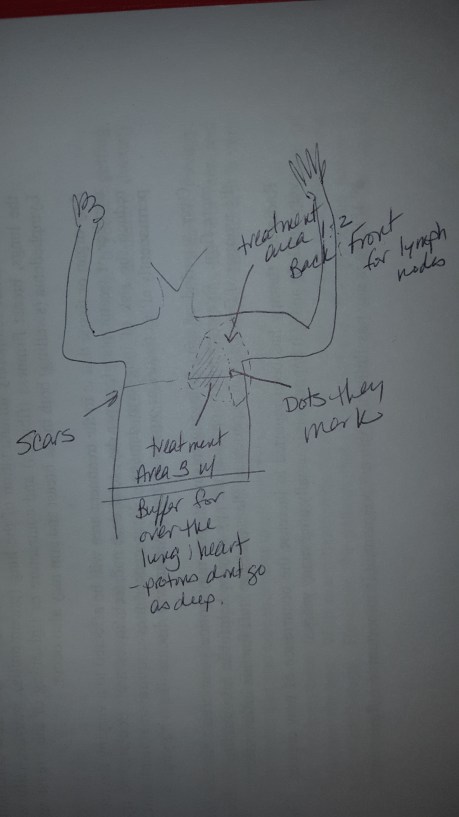 treatment
area 1:2
Back: Front
for lymph
nodes
Scars
Dots they
mark
treatment
Area 3 w/
Buffer for
over the
lung; heart
- protons dont go
as deep.